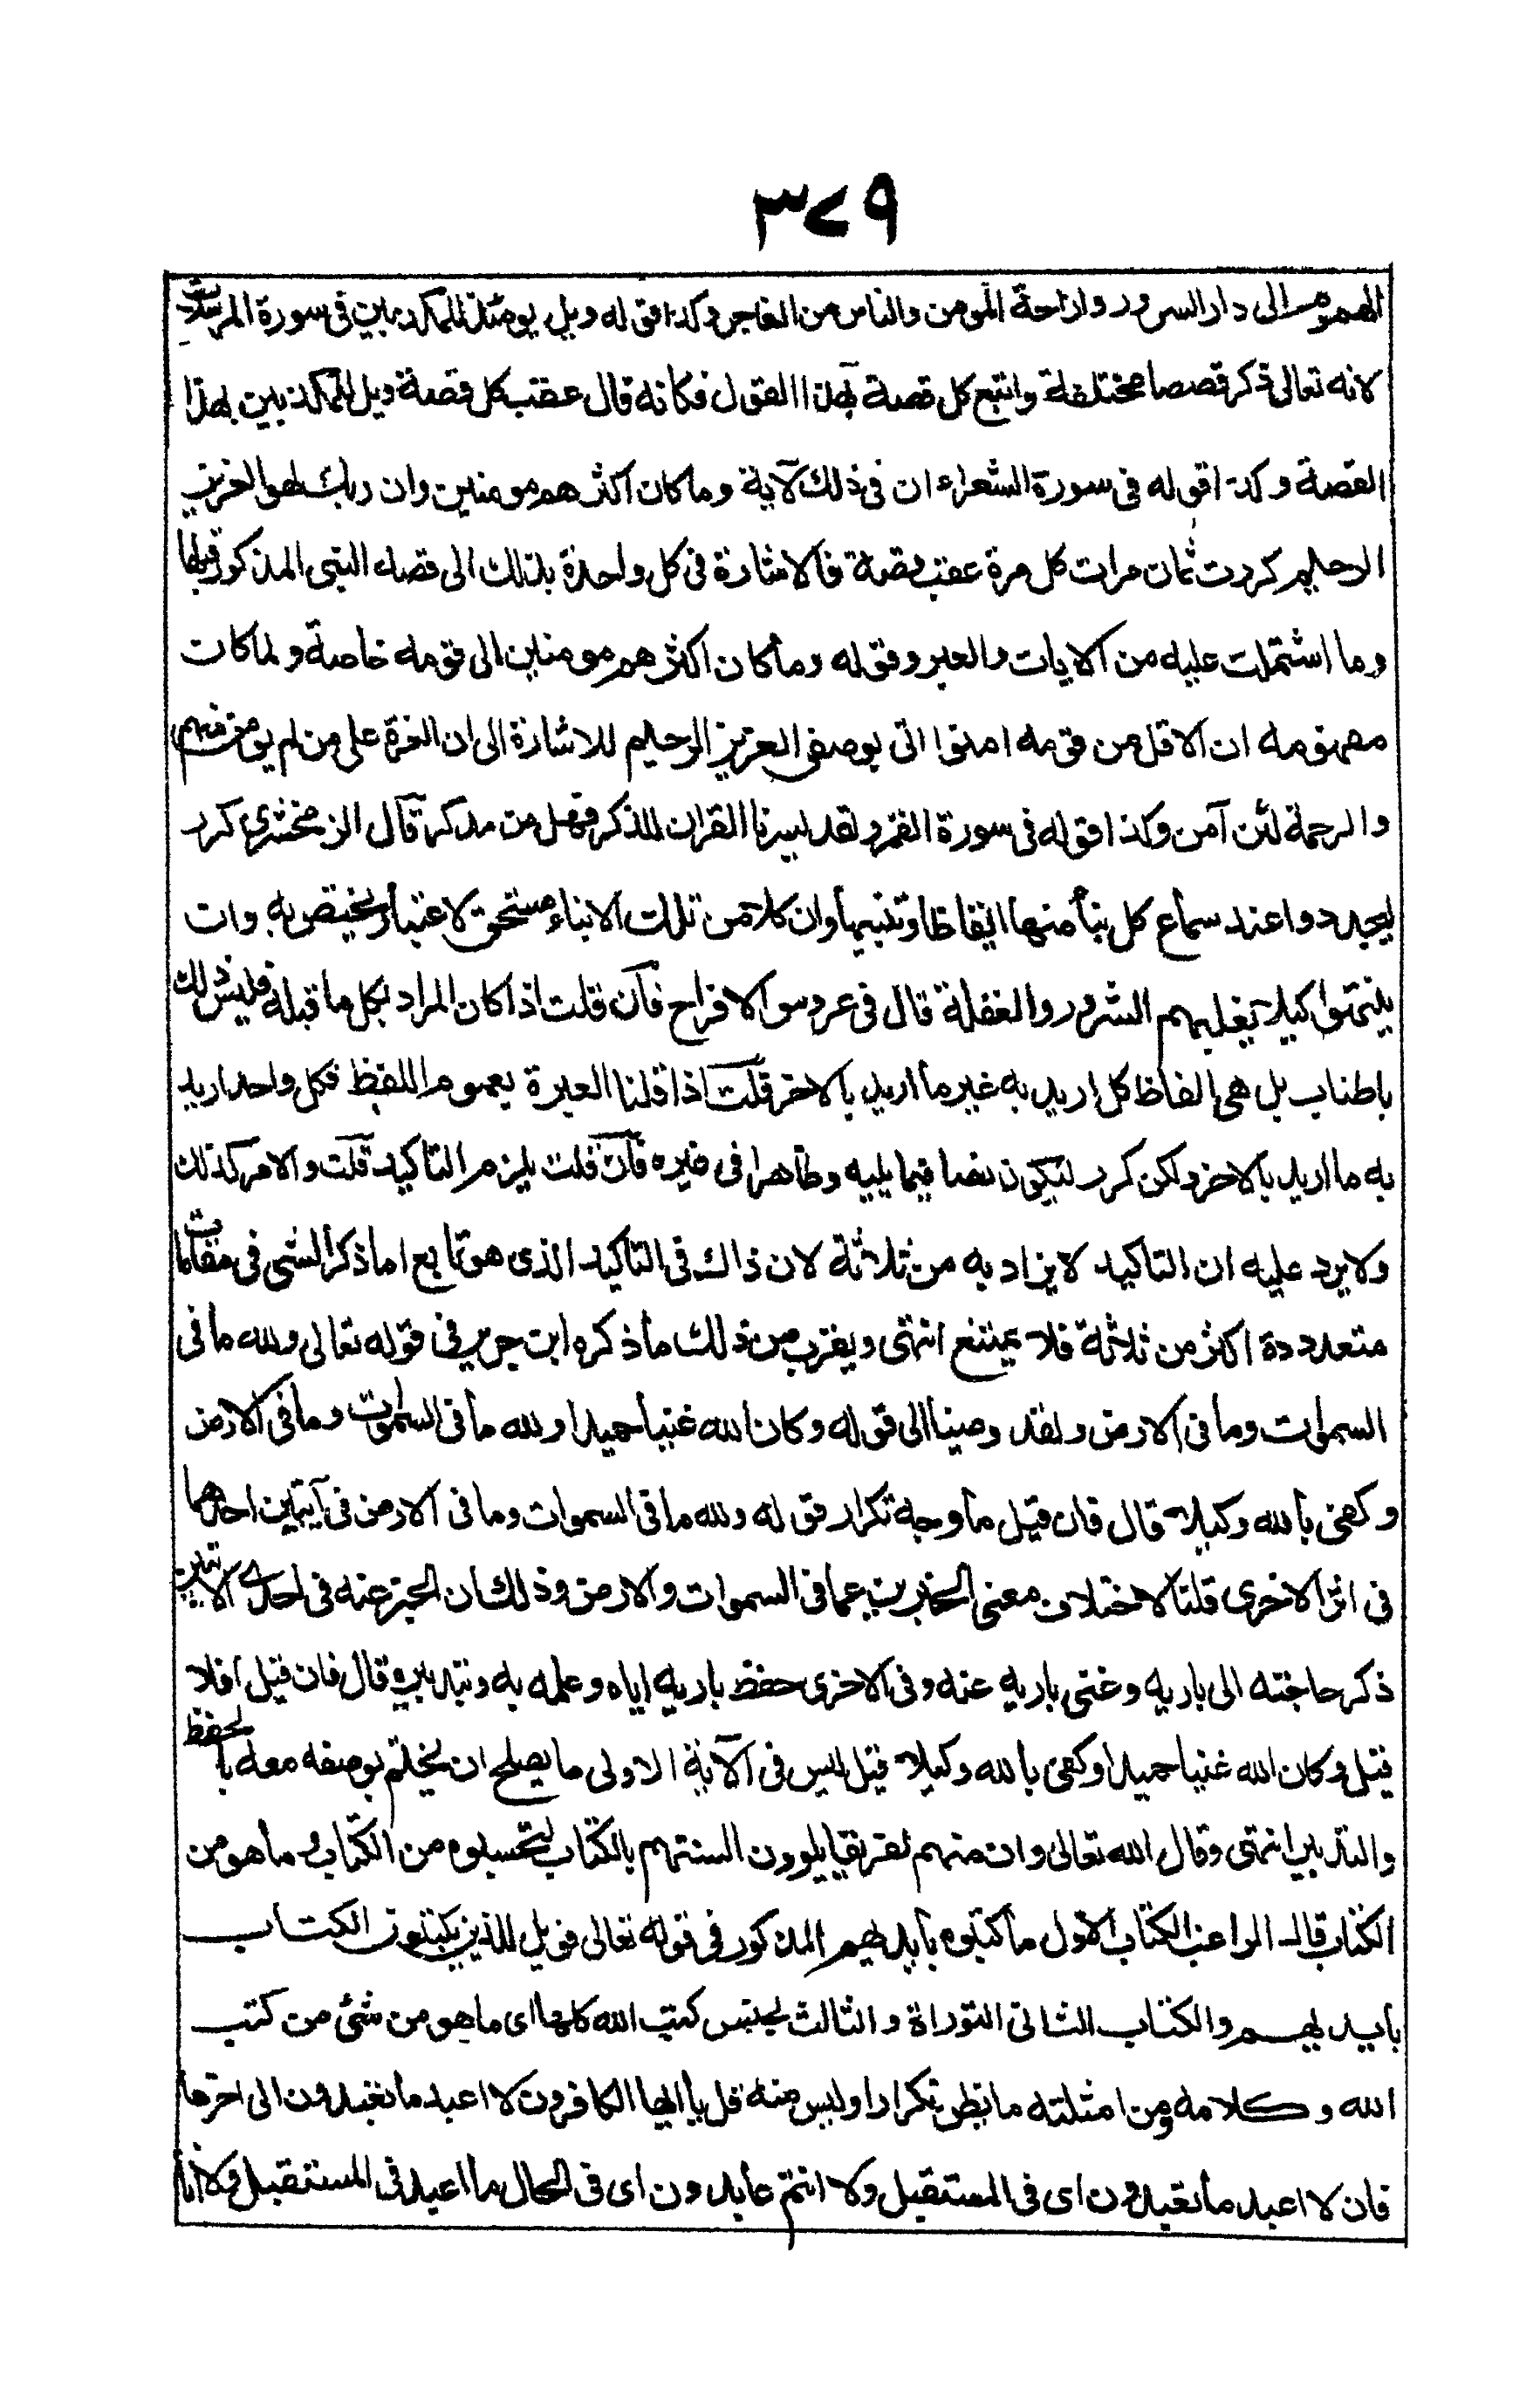 ٣٧٩
الهموم الى دار السرور واراحة المومن والناس من الفاجر وكذا قوله ويل يومئذ للمكذبين فى سورة المرسلات
لانه تعالى ذكر قصصا مختلفة واتبع كل قصة بهذا القول فكانه قال عقب كل قصة ويل للمكذبين بهذا
القصة وكذا قوله فى سورة الشعراء ان فى ذلك لآية وما كان اكثرهم مومنين وان ربك لهو العزيز
الرحيم كررت ثمان مرات كل مرة عقب قصة فالاشارة فى كل واحدة بذلك الى قصة النبى المذكور قبلها
وما اشتملت عليه من الايات والعبر وقوله وما كان اكثرهم مومنين الى قومه خاصة ولما كان
مفهومه ان الاقل من قومه امنوا اتى بوصفى العزيز الرحيم للاشارة الى ان العزة على من لم يومن منهم
والرحمة لمن آمن وكذا قوله فى سورة القمر ولقد يسرنا القران للذكر فهل من مدكر قال الزمخشرى كرر
ليجددوا عند سماع كل نبأ منها ايقاظا وتنبيها وان كلا من تلك الانباء مستحق لاعتبار يختص به وان
يلتنبهوا كيلا تغلبهم الشرور والغفلة قال فى عروس الافراح فان قلت اذا كان المراد بكل ما قبله فليس ذلك
باطناب بل هى الفاظ كل اريد به غير ما اريد بالاخر قلت اذا قلنا العبرة بعموم اللفظ فكل واحد اريد
به ما اريد بالاخر ولكن كرر ليكون نصا فيما يليه وظاهرا فى غيره فان قلت يلزم التاكيد قلت والامر كذلك
ولا يرد عليه ان التاكيد لا يزاد به من ثلاثة لان ذاك فى التاكيد الذى هو تابع اما ذكر الشى فى مقامات
متعددة اكثر من ثلاثة فلا يمتنع انتهى ويقرب من ذلك ما ذكره ابن جرير فى قوله تعالى ولله ما فى
السموات وما فى الارض ولقد وصينا الى قوله وكان الله غنيا حميدا ولله ما فى السموات وما فى الارض
وكفى بالله وكيلا قال فان قيل ما وجه تكرار قوله ولله ما فى السموات وما فى الارض فى آيتين احداهما
فى اثر الاخرى قلنا لاختلاف معنى الخبرين عما فى السموات والارض وذلك ان الخبر عنه فى احدى الايتين
ذكر حاجته الى باريه وغنى باريه عنه وفى الاخرى حفظ باريه اياه وعلمه به وتدبيره قال فان قيل افلا
قيل وكان الله غنيا حميدا وكفى بالله وكيلا قيل ليس فى الآية الاولى ما يصلح ان يختم بوصفه معه بالحفظ
والتدبير انتهى وقال الله تعالى وان منهم لفريقا يلوون السنتهم بالكتاب لتحسبوه من الكتاب وما هو من
الكتاب قال الراغب الكتاب الاول ما كتبوه بايديهم المذكور فى قوله تعالى فويل للذين يكتبون الكتاب
بايديهم والكتاب الثانى التوراة والثالث لجنس كتب الله كلها اى ما هو من شئ من كتب
الله وكلامه ومن امثلته ما يظن تكرارا وليس منه قل يا ايها الكافرون لا اعبد ما تعبدون الى اخرها
فان لا اعبد ما تعبدون اى فى المستقبل ولا انتم عابدون اى فى الحال ما اعبد فى المستقبل ولا انا